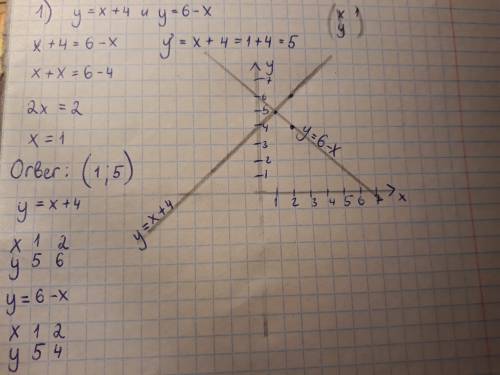 1) y=x+4 и y=6-x
x+4=6-x
y=x+4=1+4=5
(x 1
y)
x+x=6-4
2x=2
x=1
Ответ: (1;5)
y=x+4
x 1 2
y 5 6
y=6-x
x 1 2
y 5 4
y
7
6
5
4
3
2
1
1 2 3 4 5 6 7 x
y=6-x
y=x+4